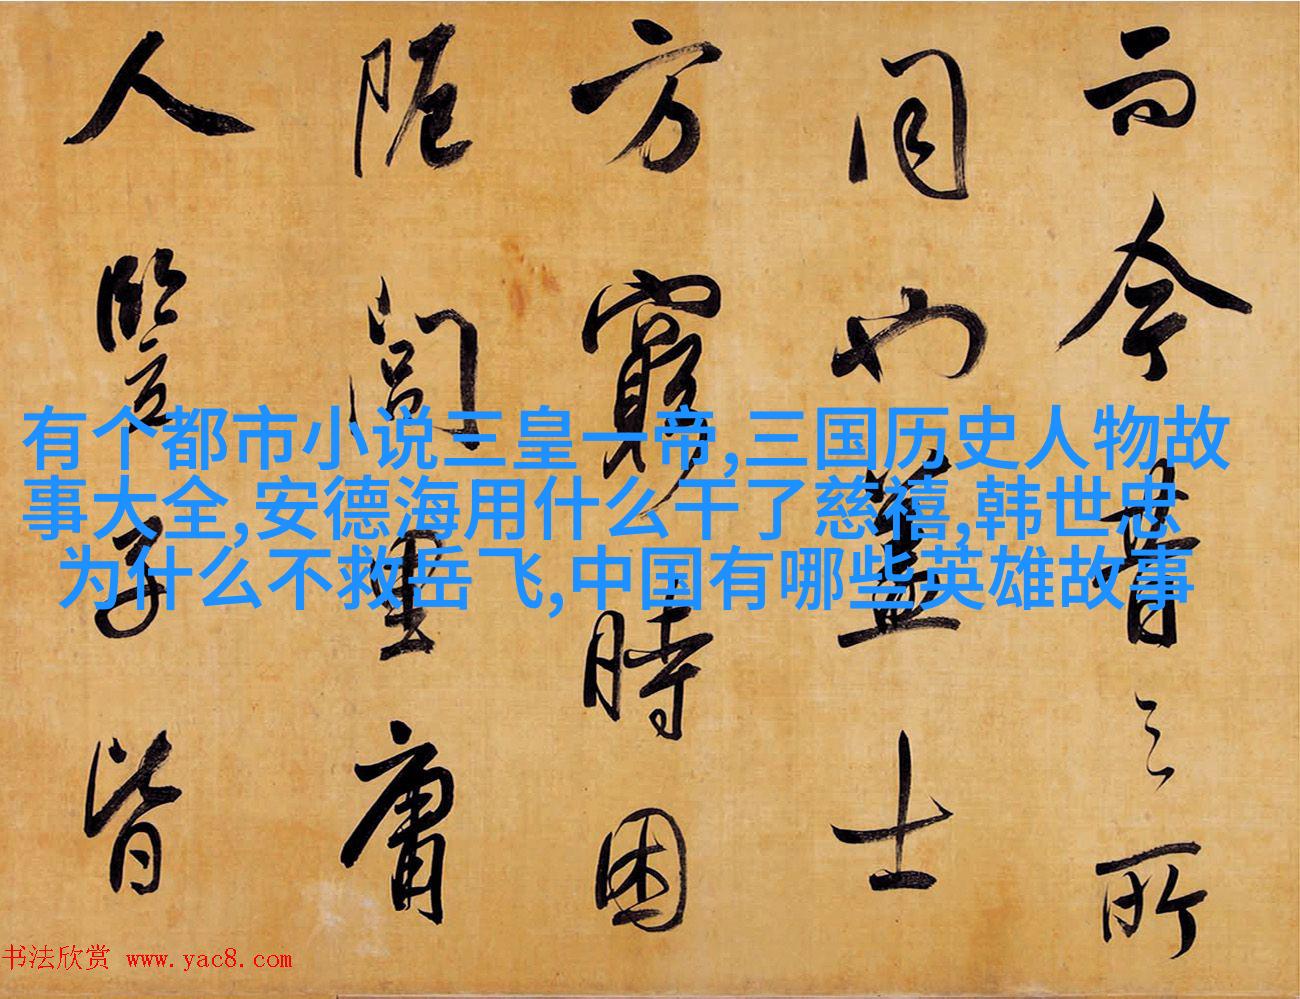 而今昔之所
同也蓋士
方窮時困
阨閭里庸
人豎子皆
有个都市小说三皇一帝,三国历史人物故
事大全,安德海用什么干了慈禧,韩世忠
为什么不救岳飞,中国有哪些英雄故事
书法欣赏 www.yac8.com